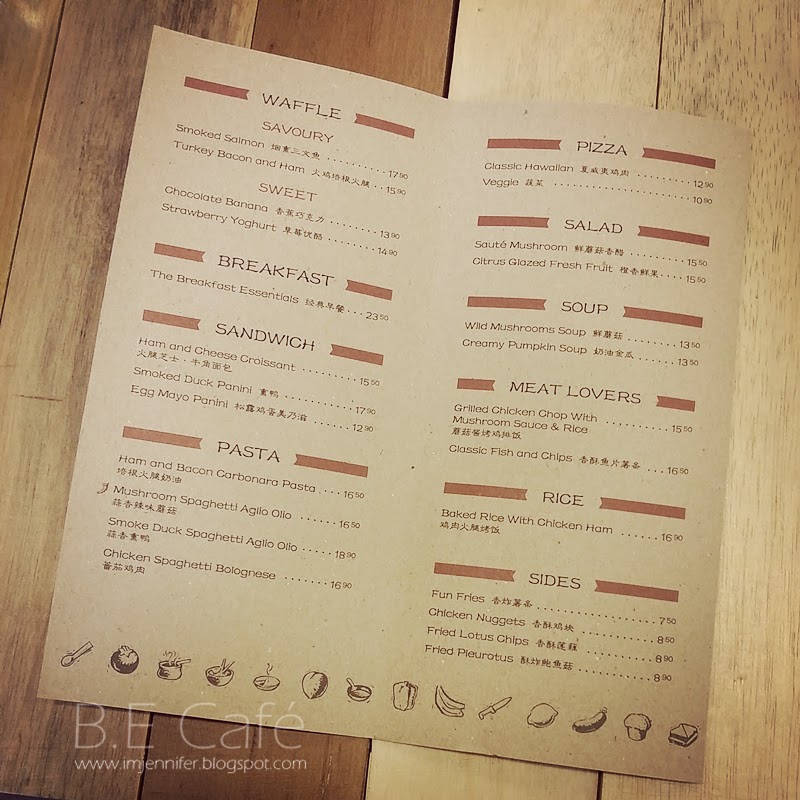 WAFFLE
SAVOURY
Smoked Salmon 烟熏三文鱼 .......... 17⁹⁰
Turkey Bacon and Ham 火鸡培根火腿 .. 15⁹⁰
SWEET
Chocolate Banana 香蕉巧克力 .......... 13⁹⁰
Strawberry Yoghurt 草莓优酪 ........ 14⁹⁰
BREAKFAST
The Breakfast Essentials 经典早餐 ... 23⁵⁰
SANDWICH
Ham and Cheese Croissant .......... 15⁵⁰
火腿芝士·牛角面包
Smoked Duck Panini 熏鸭 .......... 17⁹⁰
Egg Mayo Panini 松露鸡蛋美乃滋 ...... 12⁹⁰
PASTA
Ham and Bacon Carbonara Pasta .... 16⁵⁰
培根火腿奶油
Mushroom Spaghetti Aglio Olio ...... 16⁵⁰
蒜香辣味蘑菇
Smoke Duck Spaghetti Aglio Olio ..... 18⁹⁰
蒜香熏鸭
Chicken Spaghetti Bolognese ........ 16⁹⁰
蕃茄鸡肉
PIZZA
Classic Hawaiian 夏威夷鸡肉 ......... 12⁹⁰
Veggie 蔬菜 ................. 10⁹⁰
SALAD
Sauté Mushroom 鲜蘑菇香醋 .......... 15⁵⁰
Citrus Glazed Fresh Fruit 橙香鲜果 .... 15⁵⁰
SOUP
Wild Mushrooms Soup 鲜蘑菇 ......... 13⁵⁰
Creamy Pumpkin Soup 奶油金瓜 ...... 13⁵⁰
MEAT LOVERS
Grilled Chicken Chop With
Mushroom Sauce & Rice .......... 15⁵⁰
蘑菇酱烤鸡排饭
Classic Fish and Chips 香酥鱼片薯条 ... 16⁵⁰
RICE
Baked Rice With Chicken Ham ...... 16⁹⁰
鸡肉火腿烤饭
SIDES
Fun Fries 香炸薯条 ................ 7⁵⁰
Chicken Nuggets 香酥鸡块 ........... 8⁵⁰
Fried Lotus Chips 香酥莲藕 .......... 8⁹⁰
Fried Pleurotus 酥炸鲍鱼菇 .......... 8⁹⁰
B.E Café
www.imjennifer.blogspot.com